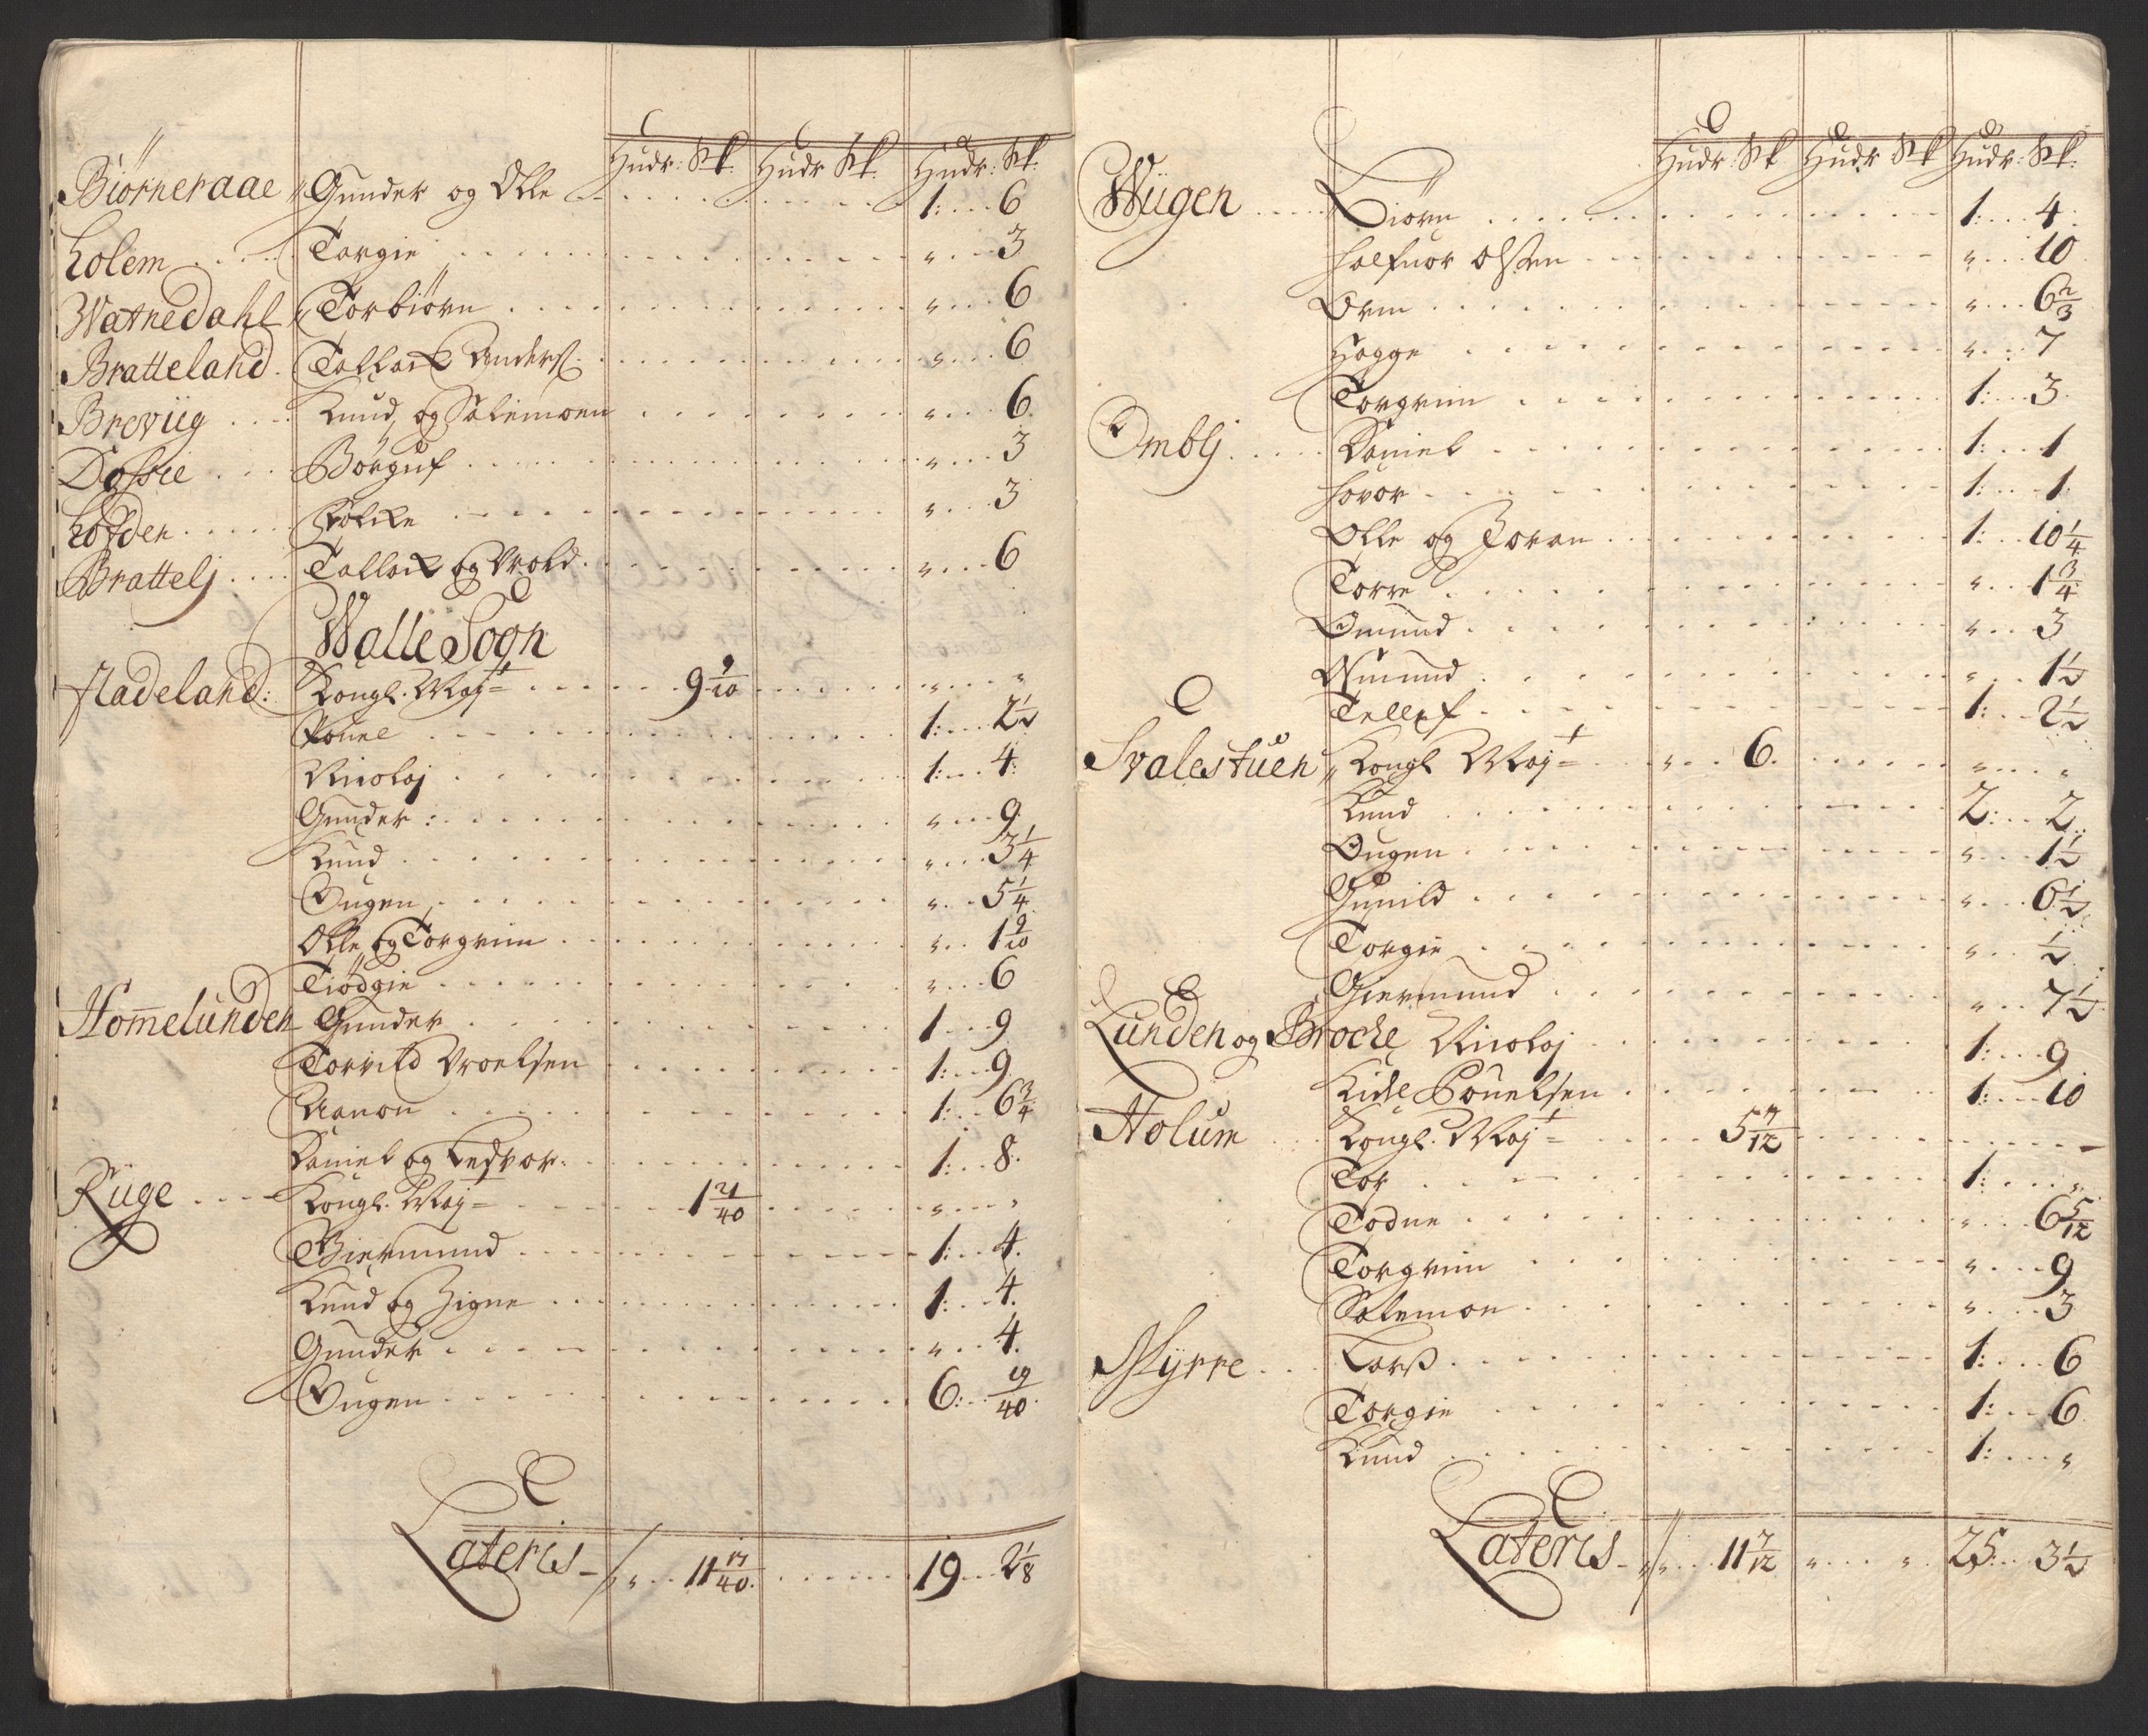 Hudr: Sk. Hudr Sk. Hudr: Sk:
Biörneraae Gunder og Olle 1: 6
Holem Torgie " 3
Watnedahl Torbiörn " 6
Bratteland Tallack Anders. " 6
Brevüg Knud og Salemoen " 6
Dossie Börguf " 3
Hofden " 3
Brattelj Tallack og Arold " 6
Walle Sogn
Fladeland: Kongl. May:t 9 9/10 " "
Pouel 1: 2 1/2
Nicolaj 1: 4
Gunder: " 9
Knud " 3 1/4
Ougen " 5 1/4
Olle og Torgrim " 1 9/10
Tiödgie " 6
Homelunden Gunder 1 9
Torvild Aroelsen 1: 9
Aanon 1: 6 3/4
Daniel og Ledvor 1: 8
Rüge Kongl. May:t 1 21/40 " "
Giermund 1: 4
Knud og Signe 1: 4
Gunder " 4
Ougen 6: 19/40
Lateris " 11 17/40 19 2 1/8
Hudr: Sk Hudr Sk Hudr: Sk:
Wiigen Biörn 1: 4
Halfuor Olsen " 10
Orm " 6 2/3
Hogge " 7
Torgrim 1: 3
Omblj Daniel 1: 1
Hovor 1: 1
Olle og Joran 1: 10 1/4
Torre " 1 3/4
Omund " 3
Asmund " 1 1/2
Tellef 1: 2 1/2
Svalestuen Kongl May:t " 6 " "
Knud 2: 2
Ougen " 1 1/2
Gunild " 6 1/2
Torgie " 1/2
Giermund " 7 1/2
Lunden og Brocke Nicolaj 1: 9
Kidel Pouelsen 1: 10
Holum Kongl. May:t 5 7/12 -
Tor 1: "
Todne " 6 5/12
Torgrim " 9
Salemon " 3
Myrre Larß 1: 6
Torgie 1: 6
Knud 1: "
Lateris " 11 7/12 " " 25: 3 1/2